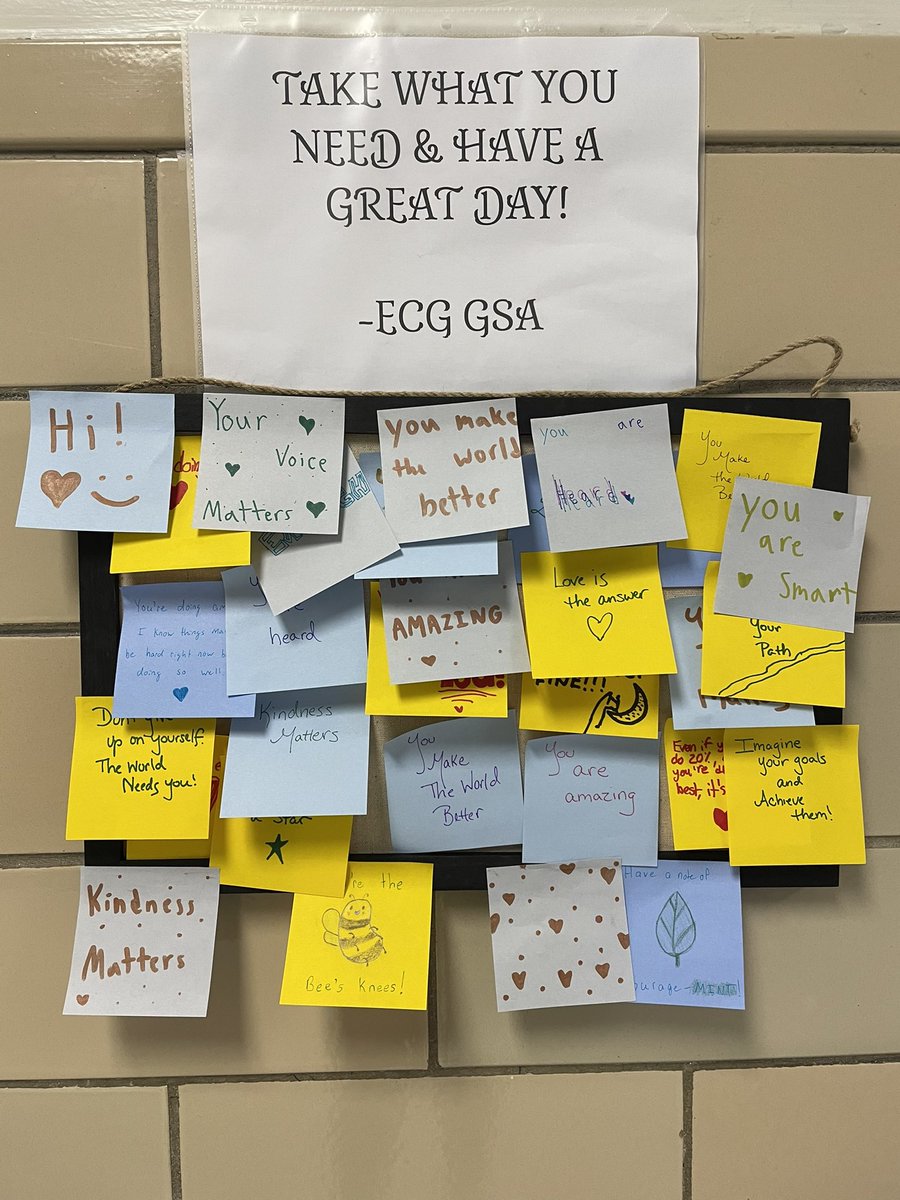 TAKE WHAT YOU
NEED & HAVE A
GREAT DAY!
-ECG GSA
Hi!
doin
Your
Voice
Matters
You make
the world
better
you are
Heard
You
Make
the World
Be
You
are
Smart
You're doing am
I know things ma
be hard right now b
doing so well
heard
AMAZING
Love is
the answer
Your
Path
FINE!!!
Don't give
up on yourself.
The World
Needs you!
Kindness
Matters
You
Make
The World
Better
You
are
amazing
Even if y
do 20%,
you're d
best, it's
Imagine
your goals
and
Achieve
them!
a Star
Kindness
Matters
're the
Bee's Knees!
Have a note of
ourage-MINT!